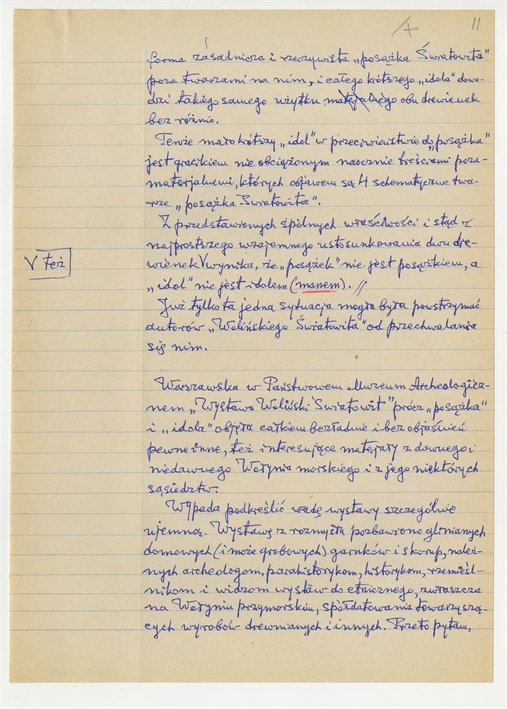 11
forma zásadnicza i rzeczywista „posążka Światowita"
poza twarzami na nim, i całego krótszego „idola" dowo-
dzi takiego samego użytku obu drewienek
bez różnic.
Tenże mało krótszy „idol" w przeciwieństwie do „posążka"
jest gracikiem nie obciążonym naocznie treściami poza-
materjalnemi, których objawem są 4 schematyczne twa-
rze „posążka Światowita".
Z przedstawionych spólnych właściwości i stąd z
najprostszego wzajemnego ustosunkowania dwu dre-
wienek V wynika, że „posążek" nie jest posążkiem, a
V też
„idol" nie jest idolem (manem). //
Już tylko ta jedna sytuacja mogła była powstrzymać
autorów „Wolińskiego Światowita" od przechwalania
się nim.
Warszawska w Państwowem Muzeum Archeologicz-
nem „Wystawa Woliński Światowit" prócz „posążka"
i „idola" objęła całkiem bezładnie i bez objaśnień
pewne inne, też interesujące materjały z dawnego i
niedawnego Wołynia morskiego i z jego niektórych
sąsiedztw.
Wypada podkreślić wadę wystawy szczególnie
ujemną. Wystawę z rozmysłu pozbawiono glinianych
domowych (i może grobowych) garnków i skorup, należ-
nych archeologom, parahistorykom, historykom, rzemieśl-
nikom i widzom wystaw do etnicznego, zwłaszcza
na Wołyniu przymorskim, spółdatowania towarzyszą-
cych wyrobów drewnianych i innych. Przeto pytam,